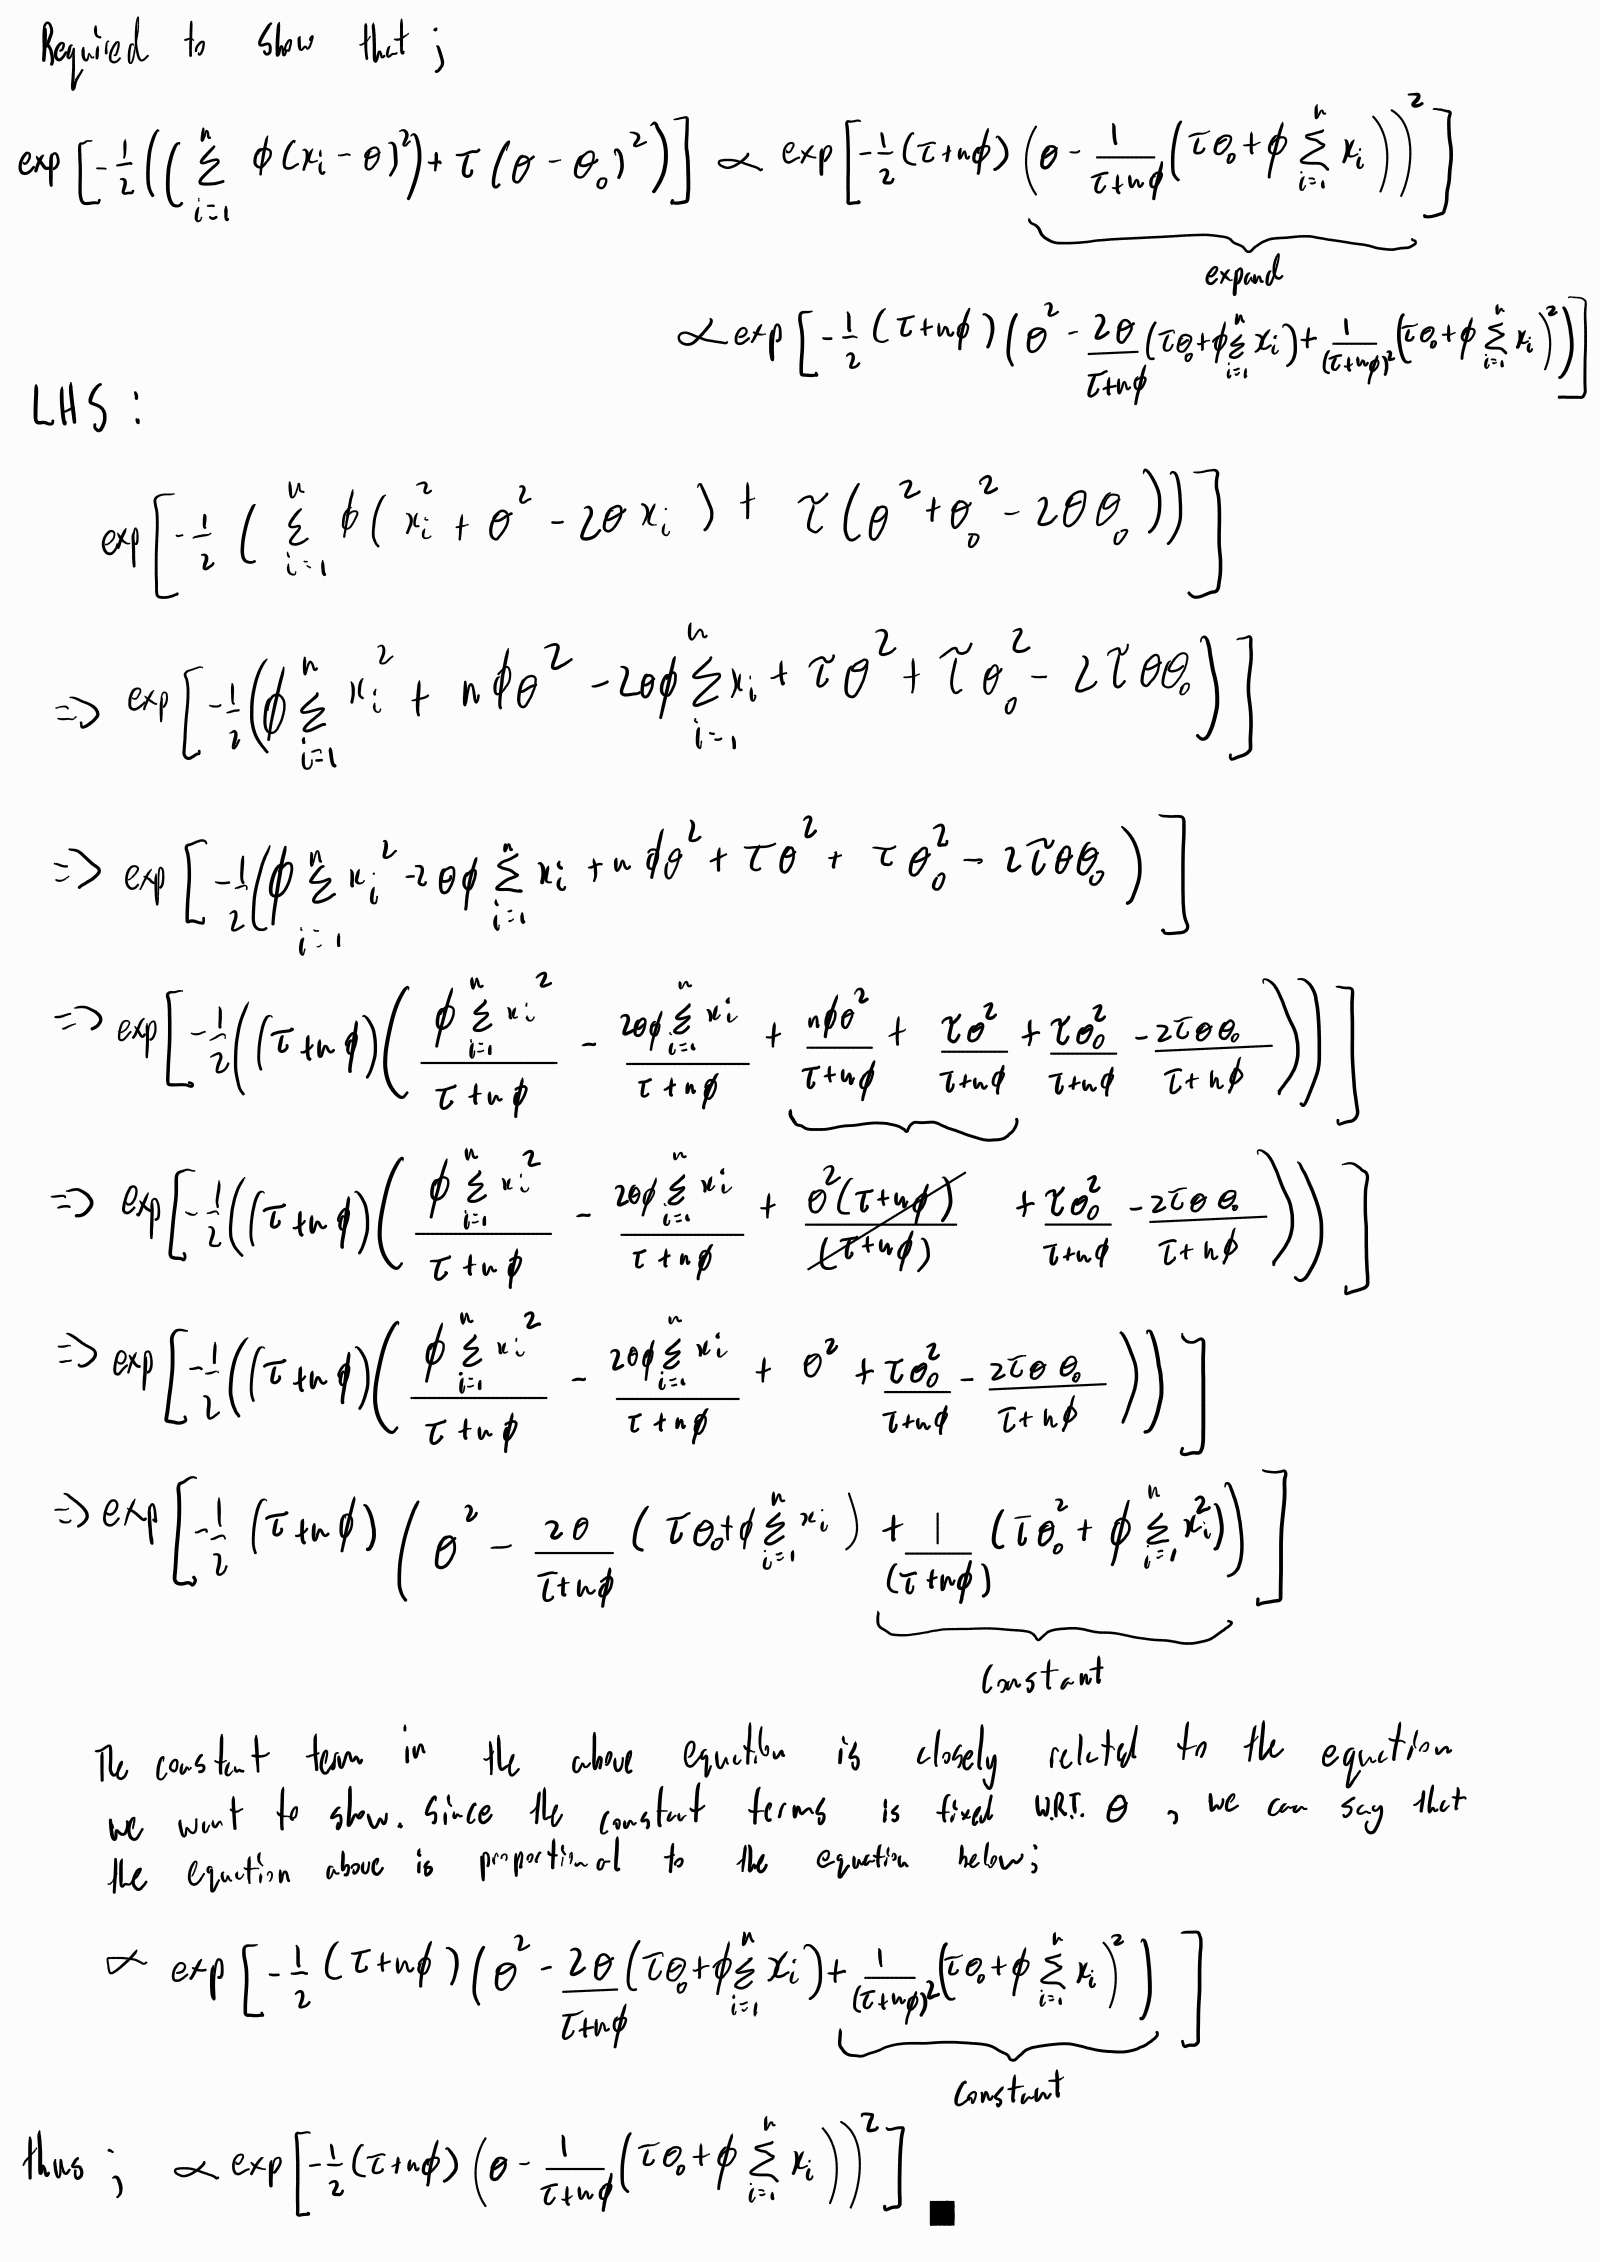 Required to show that ;
exp [ -1/2 ( ( Σ_{i=1}^{n} ϕ(x_i - θ)^2 ) + τ (θ - θ_0)^2 ) ] ∝ exp [ -1/2 (τ+nϕ) ( θ - 1/(τ+nϕ) ( τθ_0 + ϕ Σ_{i=1}^{n} x_i ) )^2 ]
expand
∝ exp [ -1/2 (τ+nϕ) ( θ^2 - 2θ/(τ+nϕ) (τθ_0 + ϕ Σ_{i=1}^{n} x_i) + 1/(τ+nϕ)^2 (τθ_0 + ϕ Σ_{i=1}^{n} x_i)^2 ) ]
LHS :
exp [ -1/2 ( Σ_{i=1}^{n} ϕ ( x_i^2 + θ^2 - 2θ x_i ) + τ ( θ^2 + θ_0^2 - 2θθ_0 ) ) ]
=> exp [ -1/2 ( ϕ Σ_{i=1}^{n} x_i^2 + nϕθ^2 - 2θϕ Σ_{i=1}^{n} x_i + τθ^2 + τθ_0^2 - 2τθθ_0 ) ]
=> exp [ -1/2 ( ϕ Σ_{i=1}^{n} x_i^2 - 2θϕ Σ_{i=1}^{n} x_i + nϕθ^2 + τθ^2 + τθ_0^2 - 2τθθ_0 ) ]
=> exp [ -1/2 ( (τ+nϕ) ( ϕ Σ_{i=1}^{n} x_i^2/(τ+nϕ) - 2θϕ Σ_{i=1}^{n} x_i/(τ+nϕ) + nϕθ^2/(τ+nϕ) + τθ^2/(τ+nϕ) + τθ_0^2/(τ+nϕ) - 2τθθ_0/(τ+nϕ) ) ) ]
=> exp [ -1/2 ( (τ+nϕ) ( ϕ Σ_{i=1}^{n} x_i^2/(τ+nϕ) - 2θϕ Σ_{i=1}^{n} x_i/(τ+nϕ) + θ^2(τ+nϕ)/(τ+nϕ) + τθ_0^2/(τ+nϕ) - 2τθθ_0/(τ+nϕ) ) ) ]
=> exp [ -1/2 ( (τ+nϕ) ( ϕ Σ_{i=1}^{n} x_i^2/(τ+nϕ) - 2θϕ Σ_{i=1}^{n} x_i/(τ+nϕ) + θ^2 + τθ_0^2/(τ+nϕ) - 2τθθ_0/(τ+nϕ) ) ) ]
=> exp [ -1/2 (τ+nϕ) ( θ^2 - 2θ/(τ+nϕ) ( τθ_0 + ϕ Σ_{i=1}^{n} x_i ) + 1/(τ+nϕ) ( τθ_0^2 + ϕ Σ_{i=1}^{n} x_i^2 ) ) ]
Constant
The constant term in the above equation is closely related to the equation
we want to show. Since the constant terms is fixed W.R.T. θ , we can say that
the equation above is proportional to the equation below;
∝ exp [ -1/2 (τ+nϕ) ( θ^2 - 2θ/(τ+nϕ) (τθ_0 + ϕ Σ_{i=1}^{n} x_i) + 1/(τ+nϕ)^2 (τθ_0 + ϕ Σ_{i=1}^{n} x_i)^2 ) ]
Constant
thus ; ∝ exp [ -1/2 (τ+nϕ) ( θ - 1/(τ+nϕ) ( τθ_0 + ϕ Σ_{i=1}^{n} x_i ) )^2 ] ■